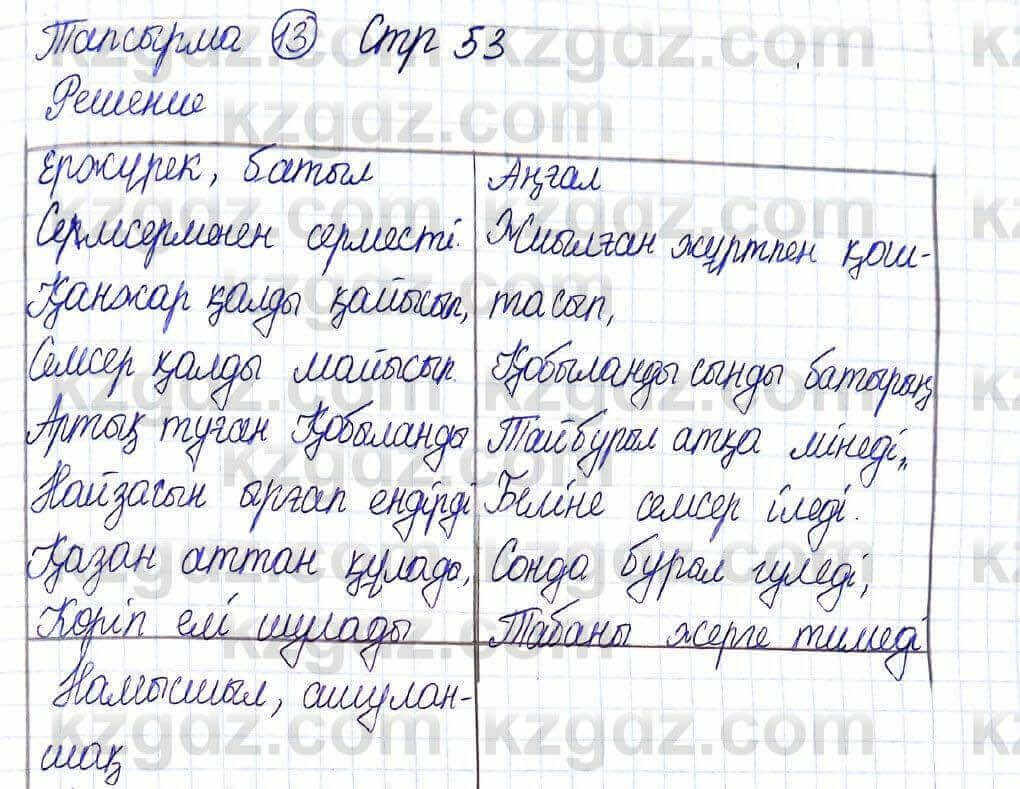 Тапсырма 13 Стр 53
Решение
Ержүрек, батыл
Серлисерменен серместі.
Қанжар қалды қайысып,
Семсер қалды майысып.
Артық туған Қобыланды
Найзасын ырғап ендірді
Қазан аттан құлады,
Көріп елі шулады
Намысшыл, ашулан-
шақ
Аңғал
Жиылған жұртпен қош-
тасып,
Қобыланды сынды батырың
Тайбурыл атқа мінеді,,
Беліне семсер іледі.
Сонда бурыл гуледі,
Табаны жерге тимеді
kzgdz.com